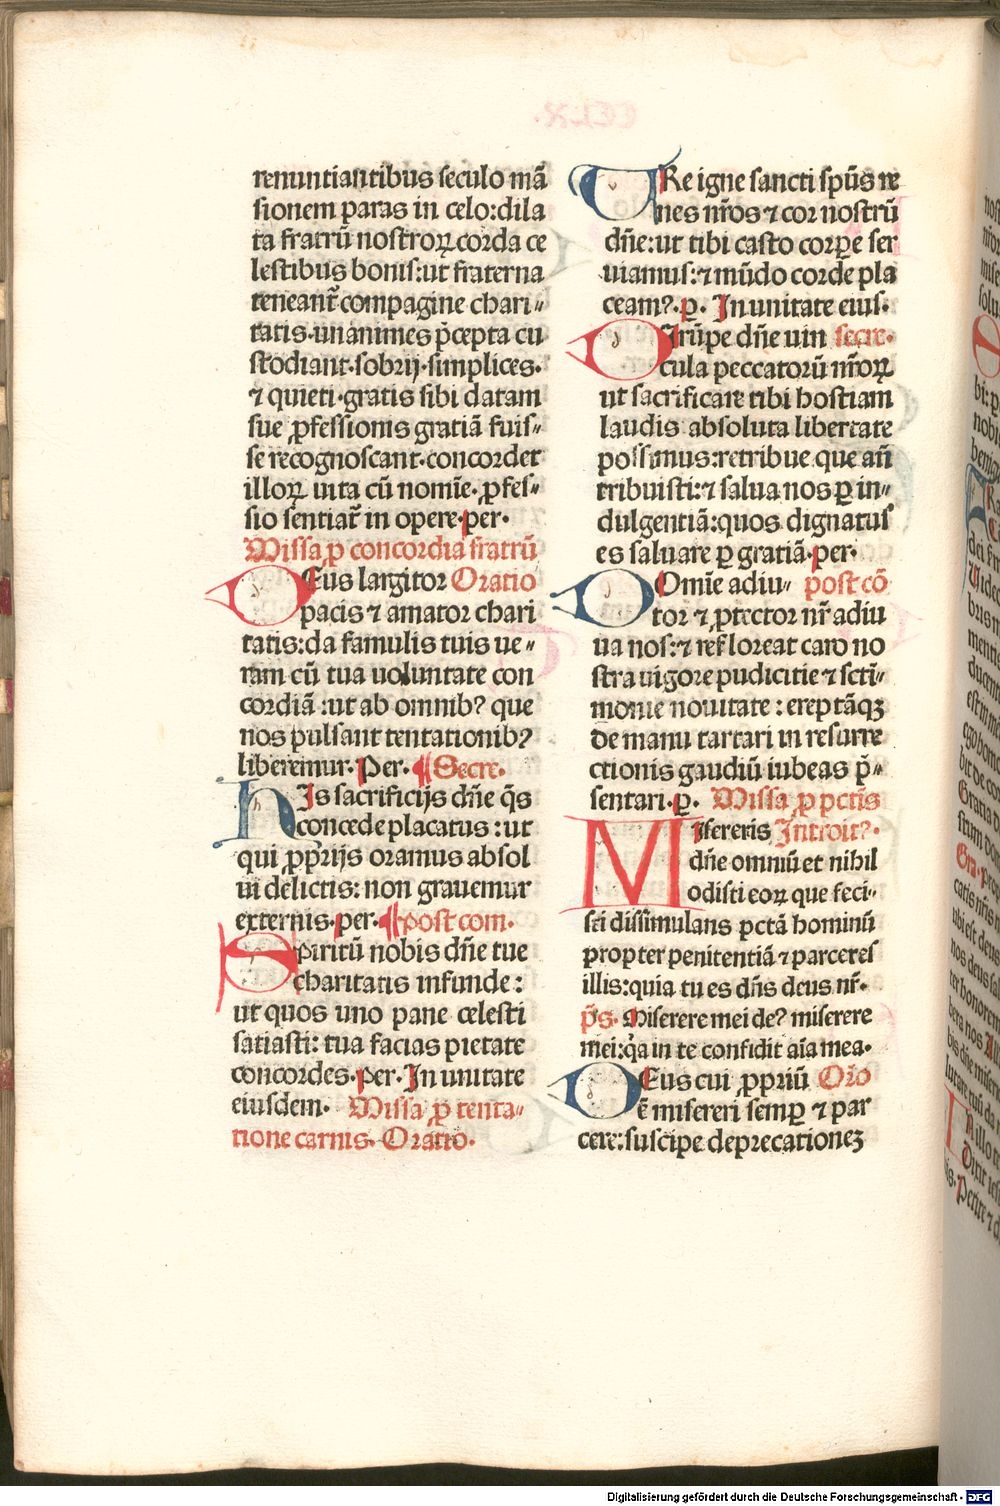 renuntiantibus seculo mã
sionem paras in celo:dila
ta fratrũ nostroꝝ corda ce
lestibus bonis:ut fraterna
teneant̃ compagine chari⸗
tatis·unanimes p̃cepta cu
stodiant·sobrij·simplices·
⁊ quieti·gratis sibi datam
sue ꝓfessionis gratiã fuis⸗
se recognoscant·concordet
illoꝝ uita cũ nomĩe·ꝓfes⸗
sio sentiat̃ in opere·per·
Missa ꝓ concordia fratrũ
DEus largitor Oratio
pacis ⁊ amator chari
tatis:da famulis tuis ue⸗
ram cũ tua uoluntate con
cordiã:ut ab omnibꝰ que
nos pulsant tentationibꝰ
liberemur·Per·¶Secre·
HIs sacrificijs dñe q̃s
concede placatus:ut
qui ꝓprijs oramus absol
ui delictis: non grauemur
externis·per·¶post com·
SPiritũ nobis dñe tue
charitatis infunde:
ut quos uno pane celesti
satiasti: tua facias pietate
concordes·per·In unitate
eiusdem· Missa ꝓ tenta⸗
tione carnis· Oratio·
URe igne sancti sp̃us re
nes nr̃os ⁊ cor nostrũ
dñe:ut tibi casto corꝑe ser
uiamus:⁊ mũdo corde pla
ceamꝰ·ꝑ· In unitate eius·
DIrũpe dñe uin secre·
cula peccatorũ nr̃oꝝ
ut sacrificare tibi hostiam
laudis absoluta libertate
possimus:retribue que añ
tribuisti:⁊ salua nos ꝑ in⸗
dulgentiã:quos dignatus
es saluare ꝑ gratiã·per·
DOmĩe adiu⸗ post cõ
tor ⁊ ꝓtector nr̃ adiu
ua nos:⁊ refloreat caro no
stra uigore pudicitie ⁊ scti⸗
monie nouitate: ereptãqꝫ
de manu tartari in resurre
ctionis gaudiũ iubeas p̃⸗
sentari·ꝑ· Missa ꝓ pctĩs
MIsereris Introitꝰ·
dñe omniũ et nihil
odisti eoꝝ que feci⸗
sti dissimulans pctã hominũ
propter penitentiã ⁊ parceres
illis:quia tu es dñs deus nr̃·
p̃s· Miserere mei deꝰ miserere
mei:q̃a in te confidit aĩa mea·
DEus cui ꝓpriũ Oro
ẽ misereri semꝑ ⁊ par
cere:suscipe deprecationeꝫ
Digitalisierung gefördert durch die Deutsche Forschungsgemeinschaft - DFG